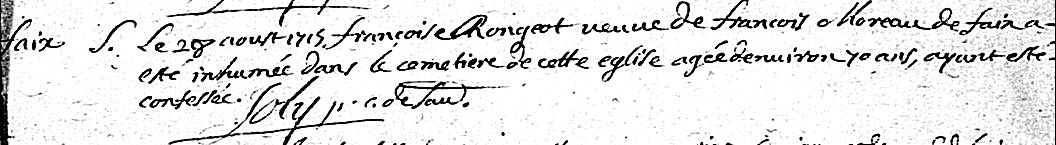 faix S. Le 28 aoust 1715, françoise Rongeot veuve de françois Moreau de fain a
esté inhumée dans le cemetiere de cette eglise agée denviron 70 ans, ayant esté
confessée. Joly p. c. de Sau.